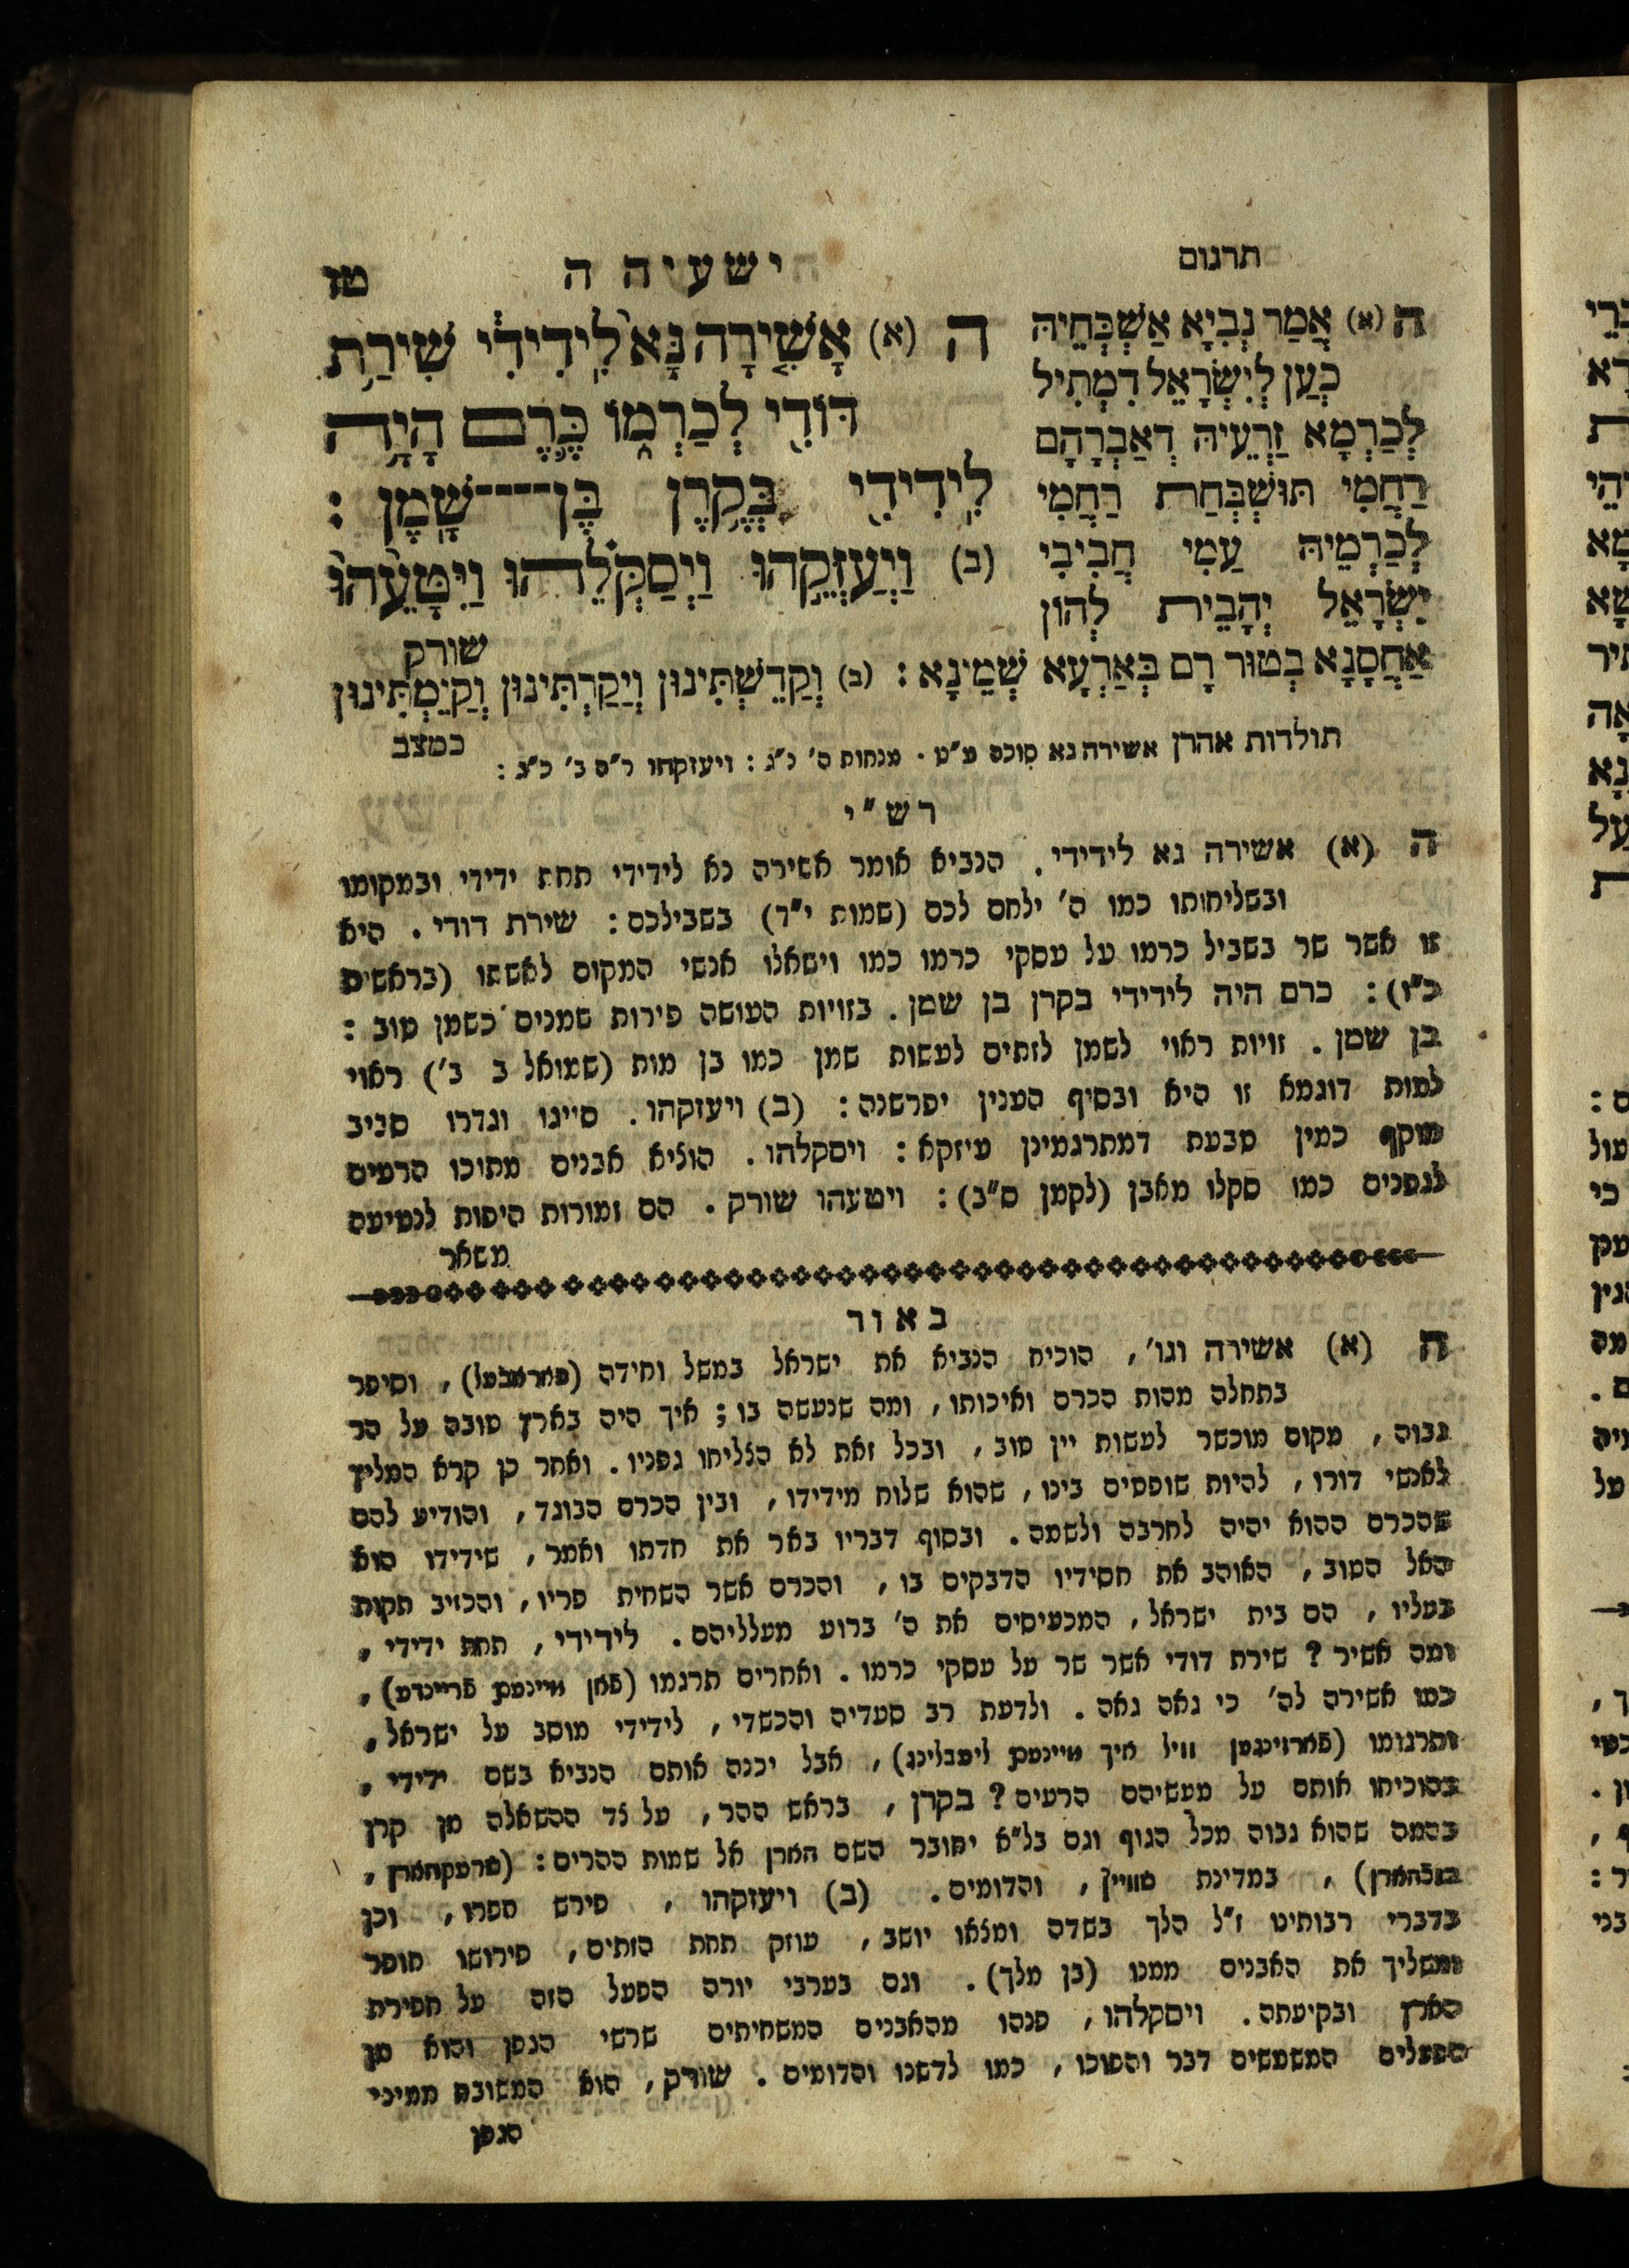 תרגום
ישעיה ה
טז
ה (א) אֲמַר נְבִיָא אַשְׁבְּחֵיהּ
כְּעַן לְיִשְׂרָאֵל דִמְתִיל
לְכַרְמָא זַרְעֵיהּ דְאַבְרָהָם
רַחֲמִי תּוּשְׁבְּחַת רַחֲמִי
לְכַרְמֵיהּ עַמִי חֲבִיבִי
יִשְׂרָאֵל יְהָבֵית לְהוֹן
אַחֲסָנָא בְטוּר רָם בְּאַרְעָא שְׁמֵינָא : (ב) וְקַדֵשְׁתִּינוּן וְיַקַרְתִּינוּן וְקַיֵמְתִּינוּן
כמצב
ה (א) אָשִׁ֤ירָה נָּא֙ לִֽידִידִ֔י שִׁירַ֥ת
דּוֹדִ֖י לְכַרְמ֑וֹ כֶּ֛רֶם הָיָ֥ה
לִֽידִידִ֖י בְּקֶ֥רֶן בֶּן־שָֽׁמֶן :
(ב) וַֽיְעַזְּקֵ֣הוּ וַֽיְסַקְּלֵ֗הוּ וַיִּטָּעֵ֙הוּ֙
שורק
תולדות אהרן אשירה נא סוכה מ"ט . מנחות ה' נ"ג : ויעזקהו ר"ה ב' כ"צ :
רש"י
ה (א) אשירה נא לידידי . הנביא אומר אשירה נא לידידי תחת ידידי ובמקומו
ובשליחותו כמו ה' ילחם לכם (שמות י"ד) בשבילכם : שירת דודי . היא
זו אשר שר בשביל כרמו על עסקי כרמו כמו וישאלו אנשי המקום לאשתו (בראשית
כ"ו) : כרם היה לידידי בקרן בן שמן . בזויות העושה פירות שמנים כשמן טוב :
בן שמן . זויות ראוי לשמן לזתים לעשות שמן כמו בן מות (שמואל ב ב') ראוי
למות דוגמא זו היא ובסיף הענין יפרשנה : (ב) ויעזקהו . סייגו וגדרו סביב
מוקף כמין טבעת דמתרגמינן עיזקא : ויסקלהו . הוציא אבנים מתוכו הרעים
לגפנים כמו סקלו מאבן (לקמן ס"ב) : ויטעהו שורק . הם זמורות היפות לנטיעה
משאר
באור
ה (א) אשירה וגו' , הוכיח הנביא את ישראל במשל וחידה (פאראבעל) , וסיפר
בתחלה מהות הכרם ואיכותו , ומה שנעשה בו ; איך היה בארץ טובה על הר
גבוה , מקום מוכשר לעשות יין טוב , ובכל זאת לא הצליחו גפניו . ואחר כן קרא המליץ
לאנשי דורו , להיות שופטים בינו , שהוא שלוח מידידו , ובין הכרם הבוגד , והודיע להם
שהכרם ההוא יהיה לחרבה ולשמה . ובסוף דבריו באר את חדתו ואמר , שידידו הוא
האל הטוב , האוהב את חסידיו הדבקים בו , והכרם אשר השחית פריו , והכזיב תקות
בעליו , הם בית ישראל , המכעיסים את ה' ברוע מעלליהם . לידידי , תחת ידידי ,
ומה אשיר ? שירת דודי אשר שר על עסקי כרמו . ואחרים תרגמו (פאן מיינעם פריינדע) ,
כמו אשירה לה' כי גאה גאה . ולדעת רב סעדיה והכשדי , לידידי מוסב על ישראל ,
ותרגומו (פארזינגען וויל איך מיינעם ליעבלינג) , אבל יכנה אותם הנביא בשם ידידי ,
בהוכיחו אותם על מעשיהם הרעים ? בקרן , בראש ההר , על צד ההשאלה מן קרן
בהמה שהוא גבוה מכל הגוף וגם בל"א יחובר השם הארן אל שמות ההרים : (שרעקהארן ,
) , במדינת שווייץ , והדומים . (ב) ויעזקהו , פירש חפרו , וכן
בדברי רבותינו ז"ל הלך בשדה ומצאו יושב , עוזק תחת הזתים , פירושו חופר
ומשליך את האבנים ממנו (בן מלך) . וגם בערבי יורה הפעל הזה על חפירת
הארץ ובקיעתה . ויסקלהו , פנהו מהאבנים המשחיתים שרשי הגפן והוא מן
הפעלים המשמשים דבר והפוכו , כמו לדשנו והדומים . שורק , הוא המשובח ממיני
הגפן